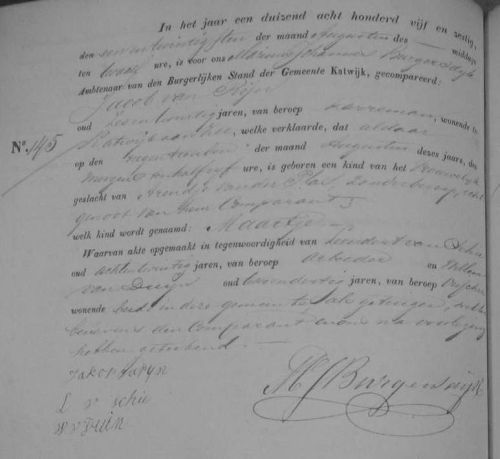 In het jaar een duizend acht honderd vijf en zestig,
den zevenentwintigsten der maand Augustus des middags
ten twaalf ure, is voor ons Marinus Johannes Burgersdijk
Ambtenaar van den Burgerlijken Stand der Gemeente Katwijk, gecompareerd:
Jacob van Rijn
oud jaren, van beroep wonende te
Katwijk aan Zee, welke verklaarde, dat aldaar
N°. 145
op den der maand Augustus dezes jaars, des
morgens ten half ure, is geboren een kind van het Vrouwelijk
geslacht van van der Plas, zonder beroep, echt
genoot van hem Comparant
welk kind wordt genaamd: Maartje
Waarvan akte opgemaakt in tegenwoordigheid van van Schie
oud achtentwintig jaren, van beroep arbeider en Willem
van Duijn oud jaren, van beroep
wonende beide in deze gemeente, als getuigen, hebbende
benevens den Comparant en ons na voorlezing
hebben geteekend.
Jakob Varyn
L v schie
W v Duin
MJBurgersdijk